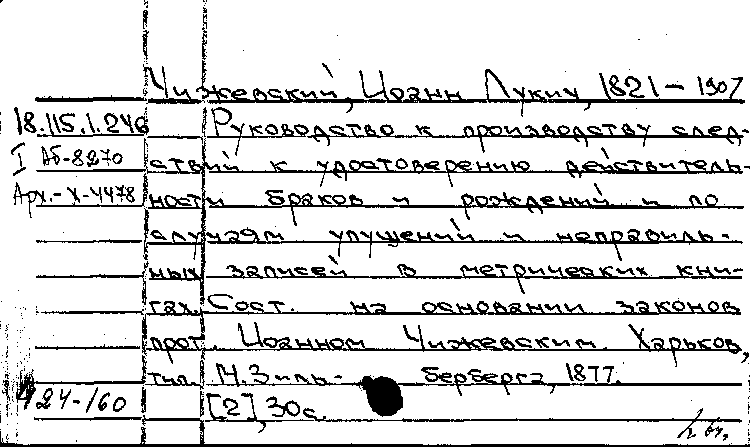 Чижевский, Иоанн Лукич, 1821 – 1907
18.115.1.246 Руководство к производству след-
I Аб-8270 ствий к удостоверению действитель-
Арх.-Х-4478 ности браков и рождений и по
случаям упущений и неправиль-
ных записей в метрических кни-
гах. Сост. на основании законов
прот. Иоанном Чижевским. Харьков,
тип. М. Зиль- берберга, 1877.
424-160 [2], 30с.